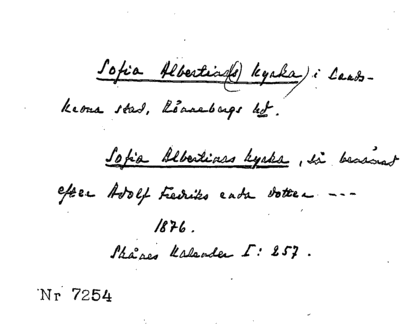 Sofia Albertina(s) kyrka) i Lands-
krona stad, Rönnebergs hd.
Sofia Albertinas kyrka, så benämnd
efter Adolf Fredriks enda dotter ---
1876.
Skånes Kalender I: 257.
Nr 7254